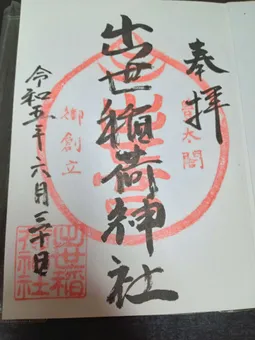 奉拝
豊太閤
出世稲荷神社
御創立
令和五年六月三十日
出世稲
荷神社